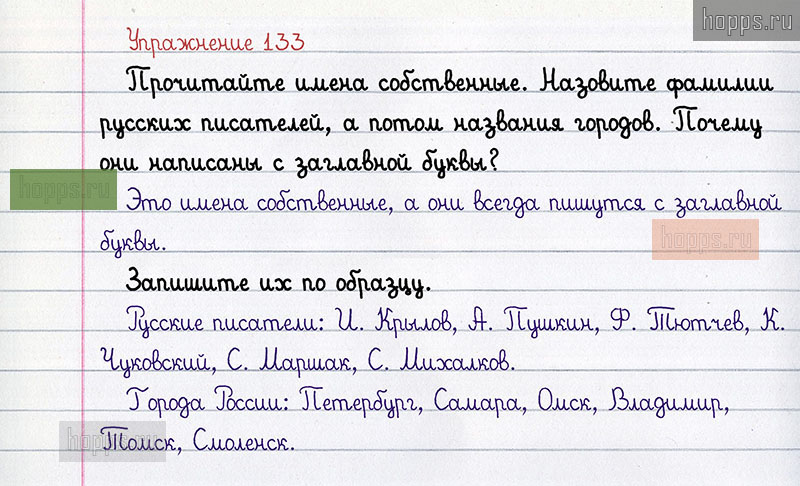 hopps.ru
Упражнение 133
Прочитайте имена собственные. Назовите фамилии
русских писателей, а потом названия городов. Почему
они написаны с заглавной буквы?
hopps.ru
Это имена собственные, а они всегда пишутся с заглавной
буквы.
hopps.ru
Запишите их по образцу.
Русские писатели: И. Крылов, А. Пушкин, Ф. Тютчев, К.
Чуковский, С. Маршак, С. Михалков.
Города России: Петербург, Самара, Омск, Владимир,
hopps.ru
Томск, Смоленск.